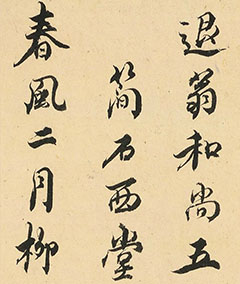 退翁和尚五
簡石西堂
春風二月柳